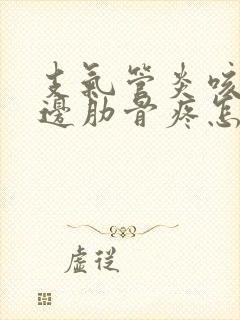 支氣管炎咳
邊肋骨疼怎
虛從